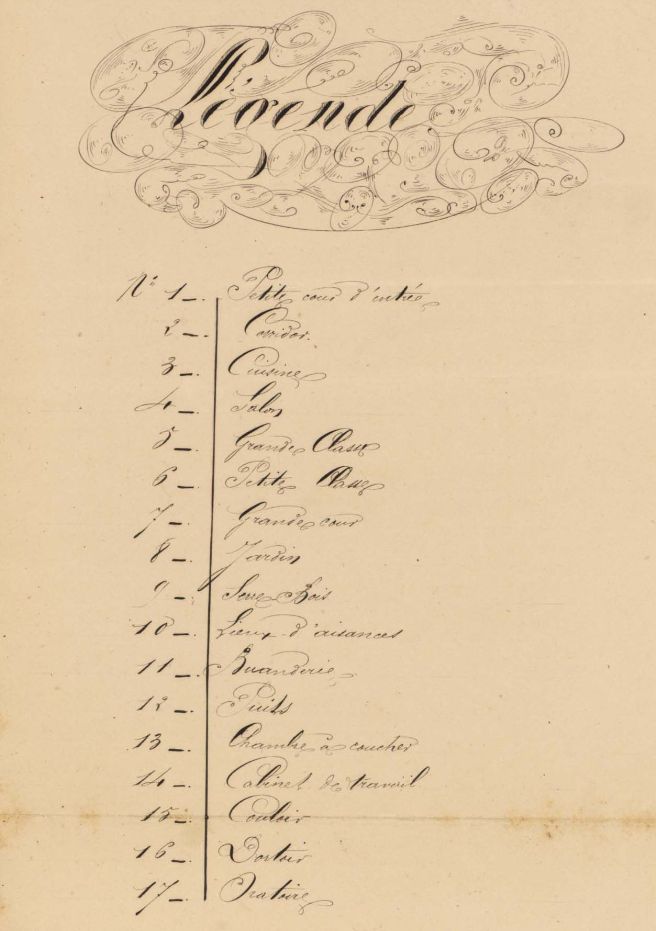 Légende
N° 1 -. Petite cour d'entrée
2 -. Corridor.
3 -. Cuisine
4 -. Salon
5 -. Grande Classe
6 -. Petite Classe
7 -. Grande cour
8 -. Jardin
9 -. Serre-Bois
10 -. Lieux d'aisances
11 -. Buanderie
12 -. Puits
13 -. Chambre à coucher
14 -. Cabinet de travail.
15 -. Couloir
16 -. Dortoir
17 -. Oratoire